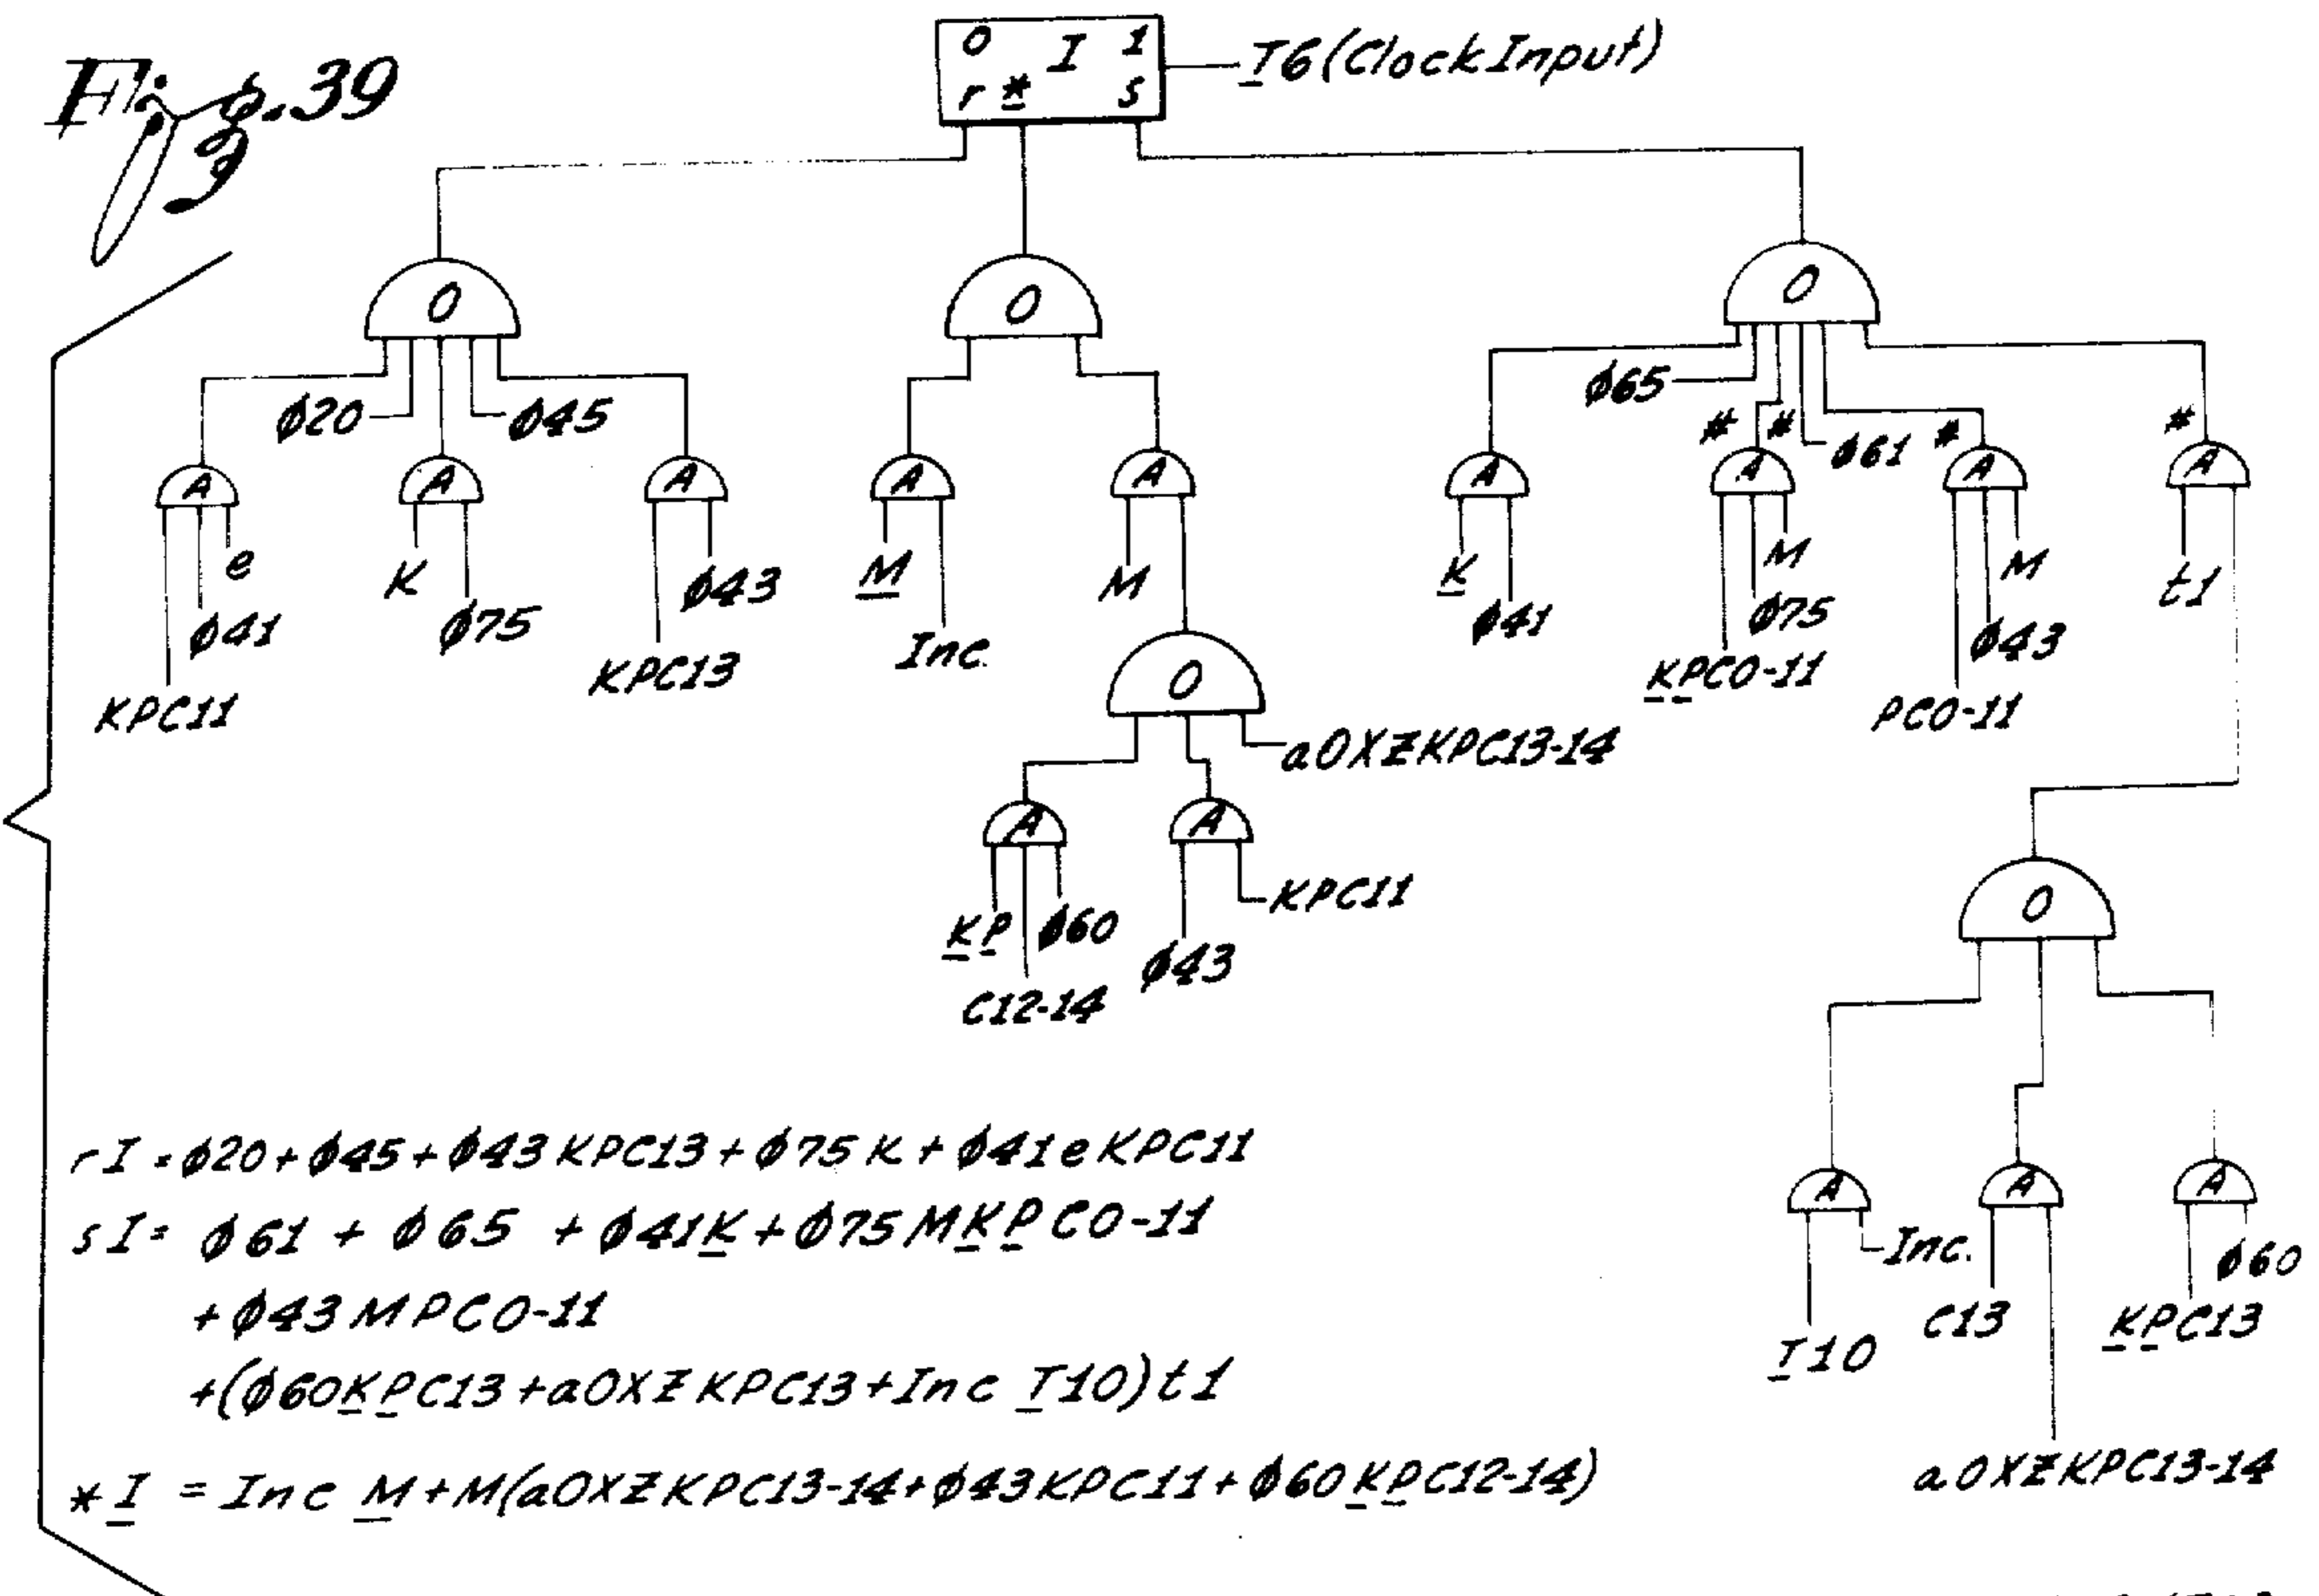 Fig. 39
0 I 1
r * s
I6(Clock Input)
O
O
O
ϕ20
ϕ45
ϕ65
# # ϕ61 # #
A
A
A
A
A
A
A
A
A
e
ϕ41
KPC11
K
ϕ75
ϕ43
KPC13
M
Inc.
M
K
ϕ41
M
ϕ75
KPC0-11
M
ϕ43
PC0-11
t1
O
a0XZKPC13-14
A
A
KP
ϕ60
C12-14
ϕ43
KPC11
O
A
A
A
I10
Inc.
C13
a0XZKPC13-14
KPC13
ϕ60
rI=ϕ20+ϕ45+ϕ43KPC13+ϕ75K+ϕ41eKPC11
sI= ϕ61 + ϕ65 +ϕ41K+ϕ75MKPC0-11
+ϕ43MPC0-11
+(ϕ60KPC13+a0XZKPC13+Inc I10)t1
*I = Inc M+M(a0XZKPC13-14+ϕ43KPC11+ϕ60KPC12-14)